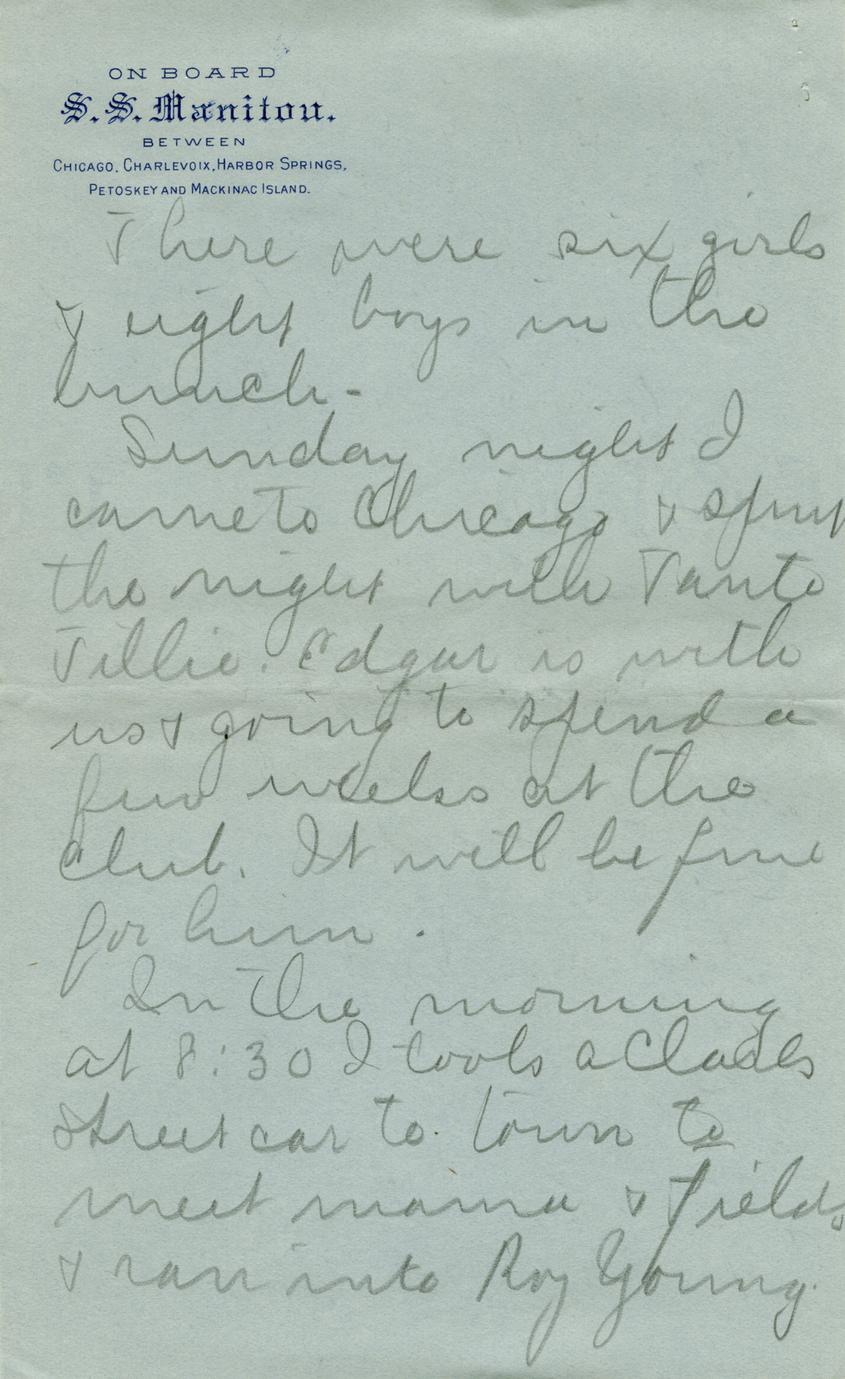 ON BOARD
S.S. Manitou.
BETWEEN
CHICAGO, CHARLEVOIX, HARBOR SPRINGS,
PETOSKEY AND MACKINAC ISLAND.
There were six girls
& eight boys in the
bunch -
Sunday night I
came to Chicago & spent
the night with Tante
Tillie. Edgar is with
us & going to spend a
few weeks at the
club. It will be fine
for him.
In the morning
at 8:30 I took a Clark
street car to town to
meet mama & Fields
& ran into Roy Young.